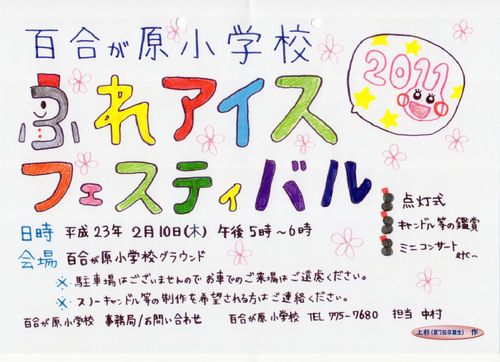 百合が原小学校
2011
ふれアイス
フェスティバル
日時 平成23年 2月10日(木) 午後5時~6時
会場 百合が原小学校グラウンド
※ 駐車場はございませんのでお車でのご来場はご遠慮ください。
※ スノーキャンドル等の制作を希望される方はご連絡ください。
百合が原小学校 事務局/お問い合わせ 百合が原小学校 TEL 775-7680 担当 中村
点灯式
キャンドル等の鑑賞
ミニコンサート
etc~
上杉(第7回卒業生) 作